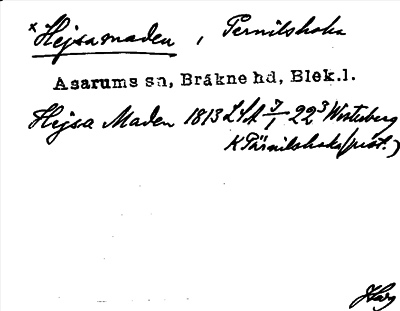 x Hejsamaden, Pernilshoka
Asarums sn, Bräkne hd, Blek.l.
Hejsa Maden 1813 LSA 7/1 22³ Westerberg
K Pärnilshoka (prot.)